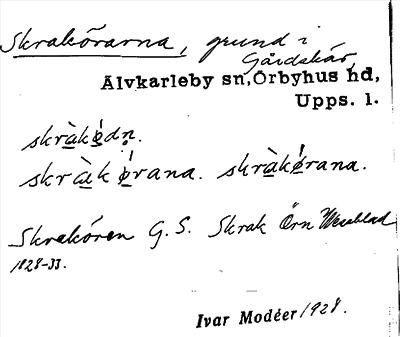 Skrakörarna, grund i
Gårdskär,
Älvkarleby sn, Örbyhus hd,
Upps. l.
skràkö́dn.
skrà̱kǿrana. skrà̱kǿrana.
Skrakören G. S. Skrak Örn Wessblad
1828-33.
Ivar Modéer 1928.